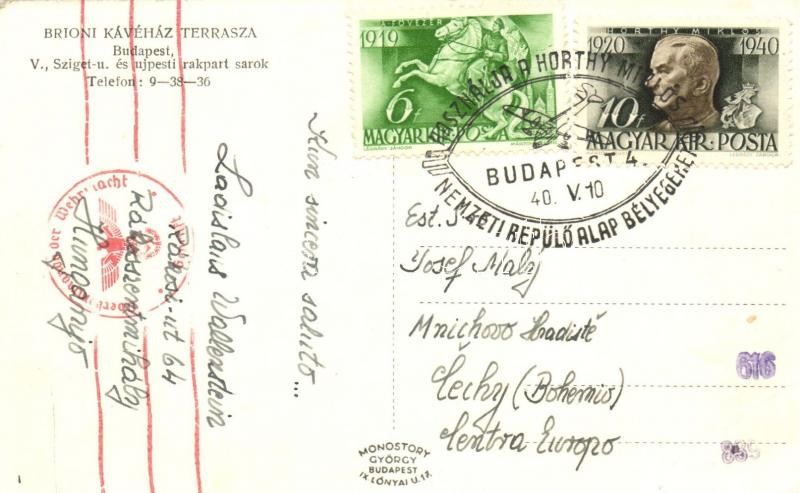 BRIONI KÁVÉHÁZ TERRASZA
Budapest,
V., Sziget-u. és ujpesti rakpart sarok
Telefon: 9—38—36
A FŐVEZÉR
1919
6f
MAGYAR KIR. POSTA
LEGRÁDY SÁNDOR
HORTHY MIKLÓS
1920 1940
10f
MAGYAR KIR. POSTA
LEGRÁDY SÁNDOR
HASZNÁLJA A HORTHY MIKLÓS
NEMZETI REPÜLŐ ALAP BÉLYEGEKET
BUDAPEST 4.
40. V. 10
der Wehrmacht
Kun sincera saluto...
Ladislaus Wallenstein
Rákosi-ut 64
Rákosszentmihály
Hungarujo
Est. S.
Josef Maly
Mnichovo Hradiště
Čechy (Bohemio)
Centra Europo
616
MONOSTORY
GYÖRGY
BUDAPEST
IX LÓNYAI U. 17.
1